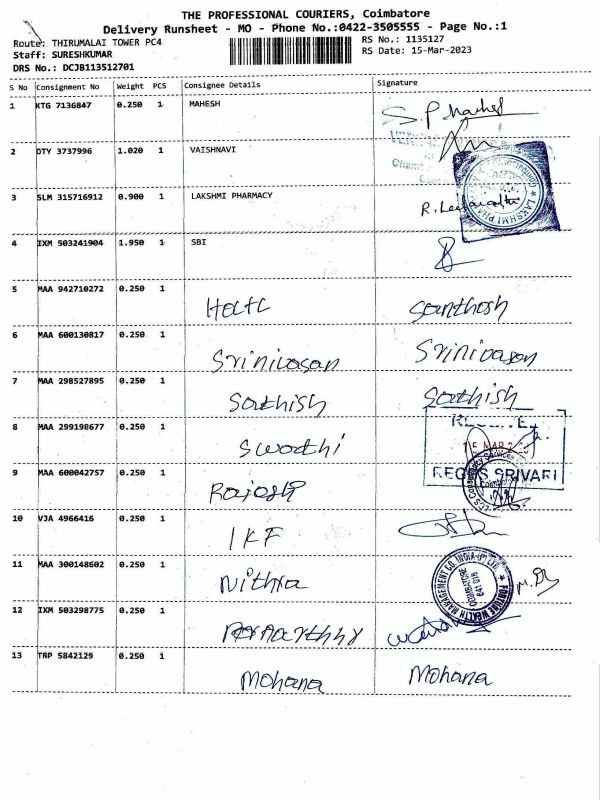 THE PROFESSIONAL COURIERS, Coimbatore
Delivery Runsheet - MO - Phone No.:0422-3505555 - Page No.:1
Route: THIRUMALAI TOWER PC4
RS No.: 1135127
Staff: SURESHKUMAR
RS Date: 15-Mar-2023
DRS No.: DCJB113512701
S No Consignment No Weight PCS Consignee Details Signature
1 KTG 7136847 0.250 1 MAHESH
2 DTY 3737996 1.020 1 VAISHNAVI
3 SLM 315716912 0.900 1 LAKSHMI PHARMACY
LAKSHMI
4 IXM 503241904 1.950 1 SBI
5 MAA 942710272 0.250 1
Santhosh
6 MAA 600130817 0.250 1
Srinivasan Srinivasan
7 MAA 298527895 0.250 1
Sathish Sathish
8 MAA 299198677 0.250 1
Swathi
9 MAA 600042757 0.250 1
REGUS SRIVARI
Rajesh
10 VJA 4966416 0.250 1
IKF
11 MAA 300148602 0.250 1
Nithra
FORTUNE WEALTH MANAGEMENT CO. INDIA (P) LTD.
COIMBATORE
641 018
12 IXM 503298775 0.250 1
13 TRP 5842129 0.250 1
Mohana Mohana